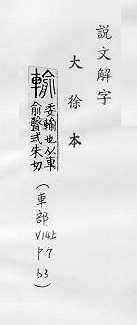 說文解字
大徐本
輸
委輸也从車
俞聲式朱切
(車部
V14上
P7
b3)